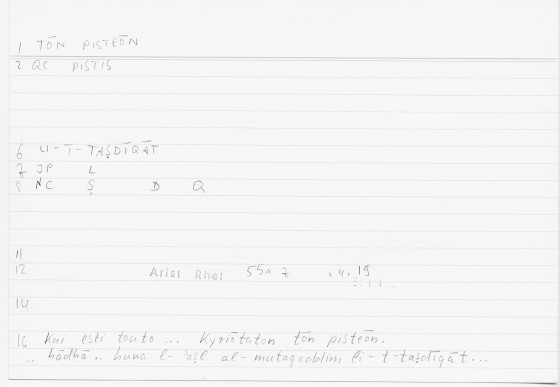 1 TŌN PISTEŌN
2 QC PISTIS
6 LI-T-TAṢDĪQĀT
7 JP L
8 NC Ṣ D Q
11
12 Arist Rhet 55a 7 , 4. 19
14
16 Kai esti touto ... Kyriōtaton tōn pisteōn.
.. hādhā .. huwa l-'aṣl al-mutaqaddim li-t-taṣdīqāt ...